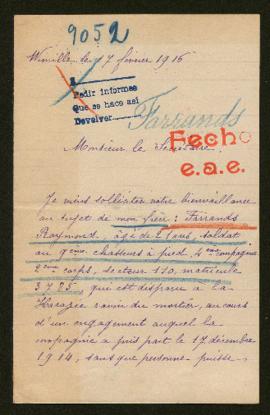 9052
le 7 février 1916
1
Pedir informes
Que se hace así
Devolver
Farrands
Fecho
e.a.e.
Monsieur le Secrétaire
Je viens solliciter votre bienveillance
au sujet de mon frère : Farrands
Raymond, âgé de 21 ans, soldat
au 9ème chasseurs à pied, 4ème compagnie
2ème corps, secteur 110, matricule
3725 qui est disparu à la
Harazée ravin du mortier, au cours
d'un engagement auquel la
compagnie a pris part le 17 décembre
1914, sans que personne puisse